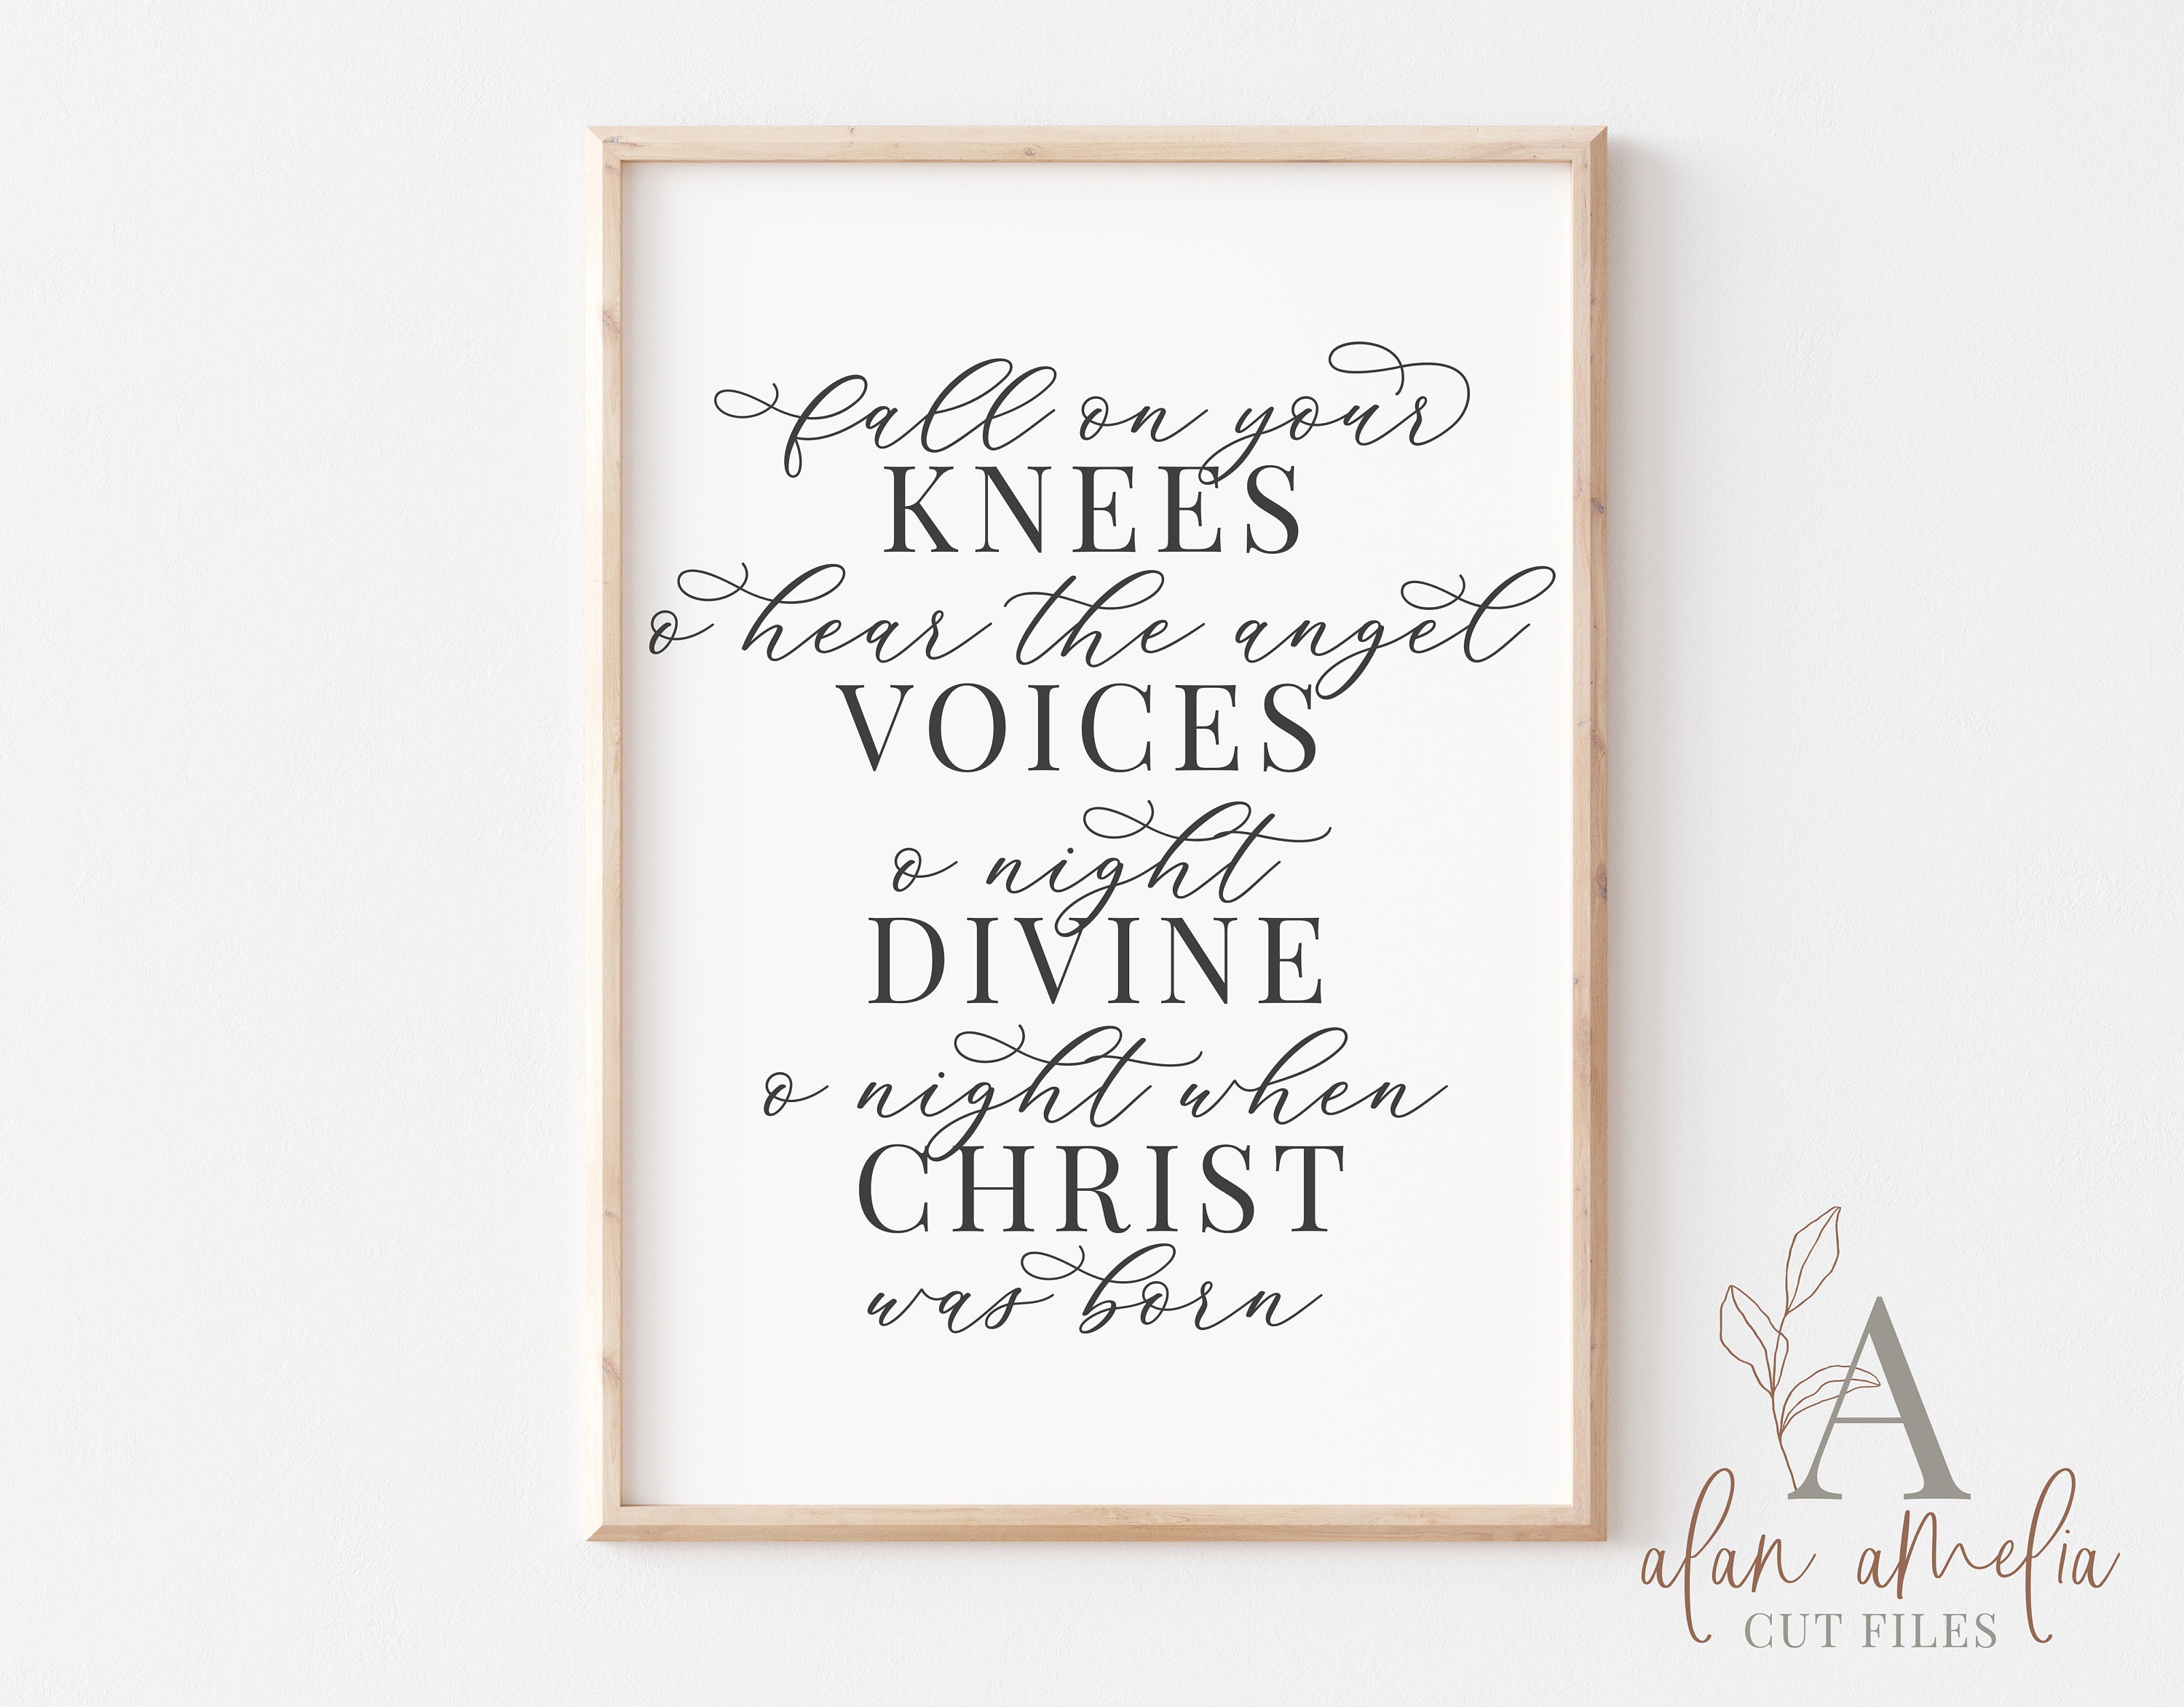 fall on your
KNEES
o hear the angel
VOICES
o night
DIVINE
o night when
CHRIST
was born
A
alan amelia
CUT FILES